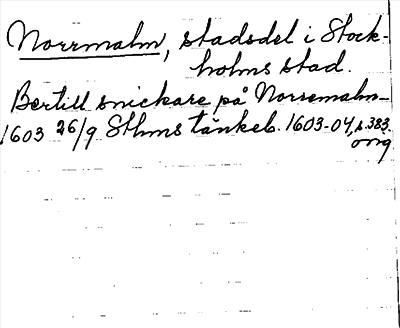 Norrmalm, stadsdel i Stock-
holms stad.
Bertill snickare på Norremalm–
1603 26/9 Sthms tänkeb. 1603-04, s. 383.
orig